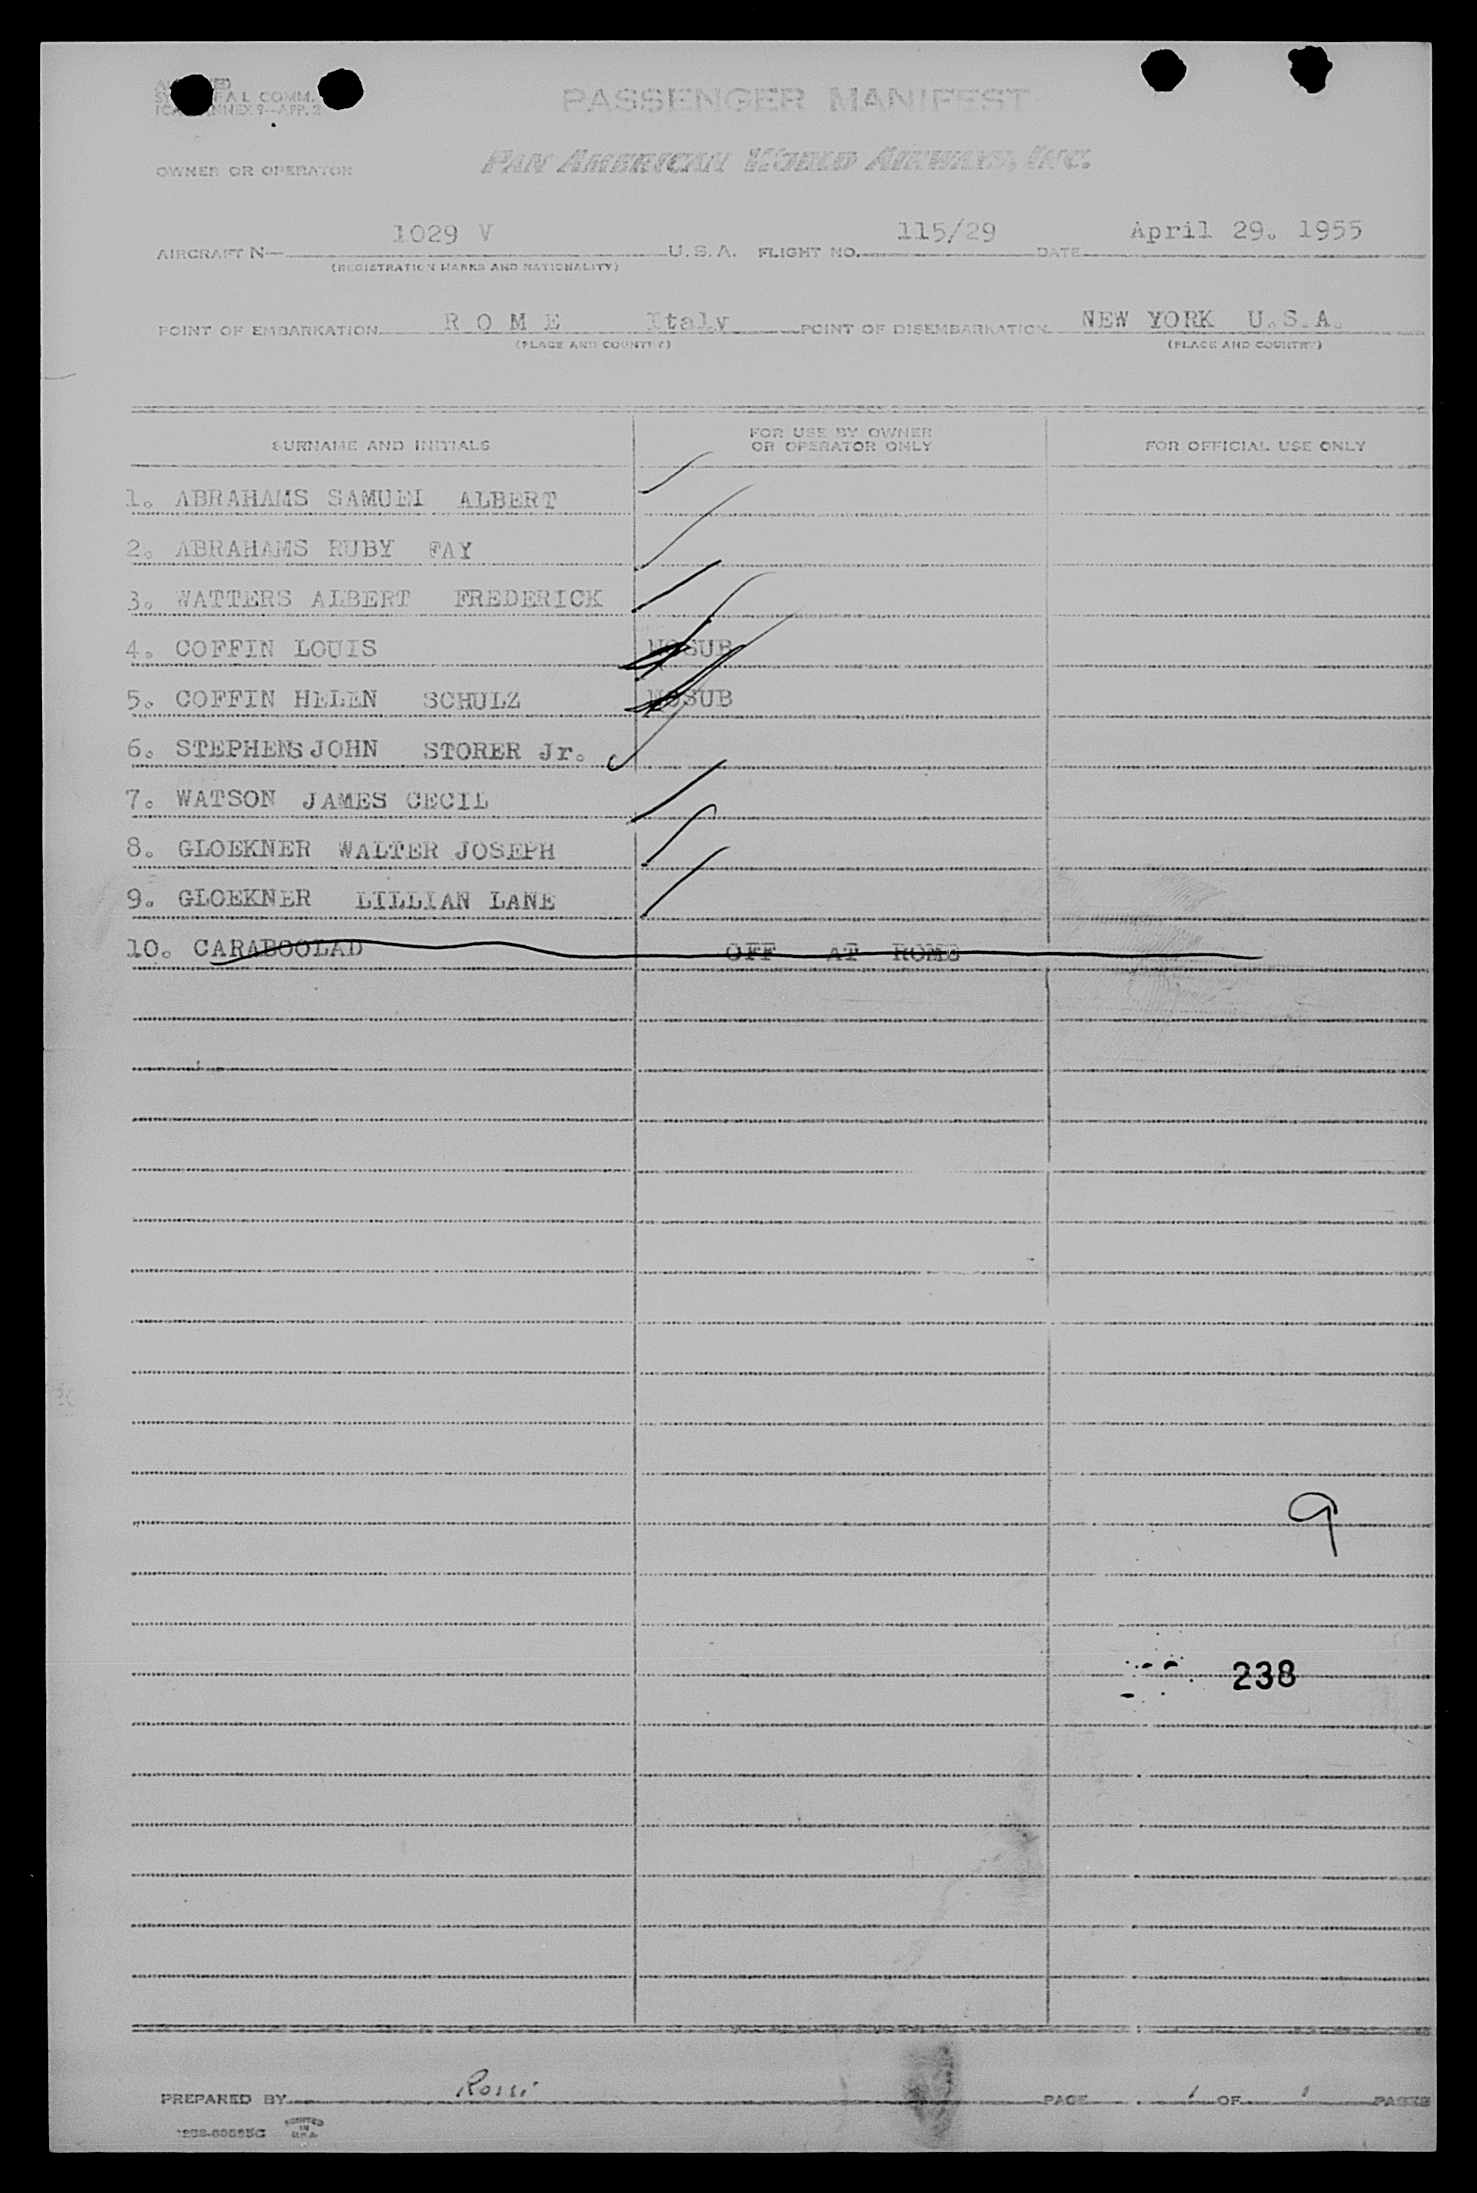 PASSENGER MANIFEST
OWNER OR OPERATOR PAN AMERICAN WORLD AIRWAYS, INC.
AIRCRAFT N— 1029 V U.S.A. FLIGHT NO. 115/29 DATE April 29. 1955
(REGISTRATION MARKS AND NATIONALITY)
POINT OF EMBARKATION R O M E Italy POINT OF DISEMBARKATION NEW YORK U.S.A.
(PLACE AND COUNTRY) (PLACE AND COUNTRY)
SURNAME AND INITIALS FOR USE BY OWNER OR OPERATOR ONLY FOR OFFICIAL USE ONLY
1. ABRAHAMS SAMUEL ALBERT
2. ABRAHAMS RUBY FAY
3. WATTERS ALBERT FREDERICK
4. COFFIN LOUIS NOSUB
5. COFFIN HELEN SCHULZ NOSUB
6. STEPHENS JOHN STORER Jr.
7. WATSON JAMES CECIL
8. GLOEKNER WALTER JOSEPH
9. GLOEKNER LILLIAN LANE
10. CARABOOLAD OFF AT ROME
9
238
PREPARED BY Rossi PAGE 1 OF 1 PAGES
PRINTED IN U.S.A.